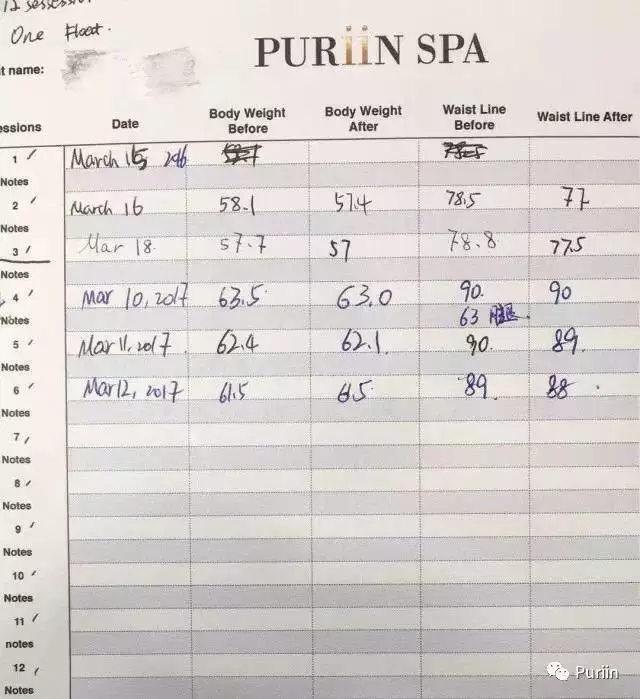 12
One Float.
PURiiN SPA
t name:
essions Date Body Weight Before Body Weight After Waist Line Before Waist Line After
1 March 15
Notes
2 March 16 58.1 57.4 78.5 77
Notes
3 Mar 18. 57.7 57 78.8 77.5
Notes
4 Mar 10, 2017 63.5 63.0 90. 90
Notes 63 腿
5 Mar 11, 2017 62.4 62.1 90. 89
Notes
6 Mar 12, 2017 61.5 61.5 89 88
Notes
7
Notes
8
Notes
9
Notes
10
Notes
11
notes
12
Notes
Puriin